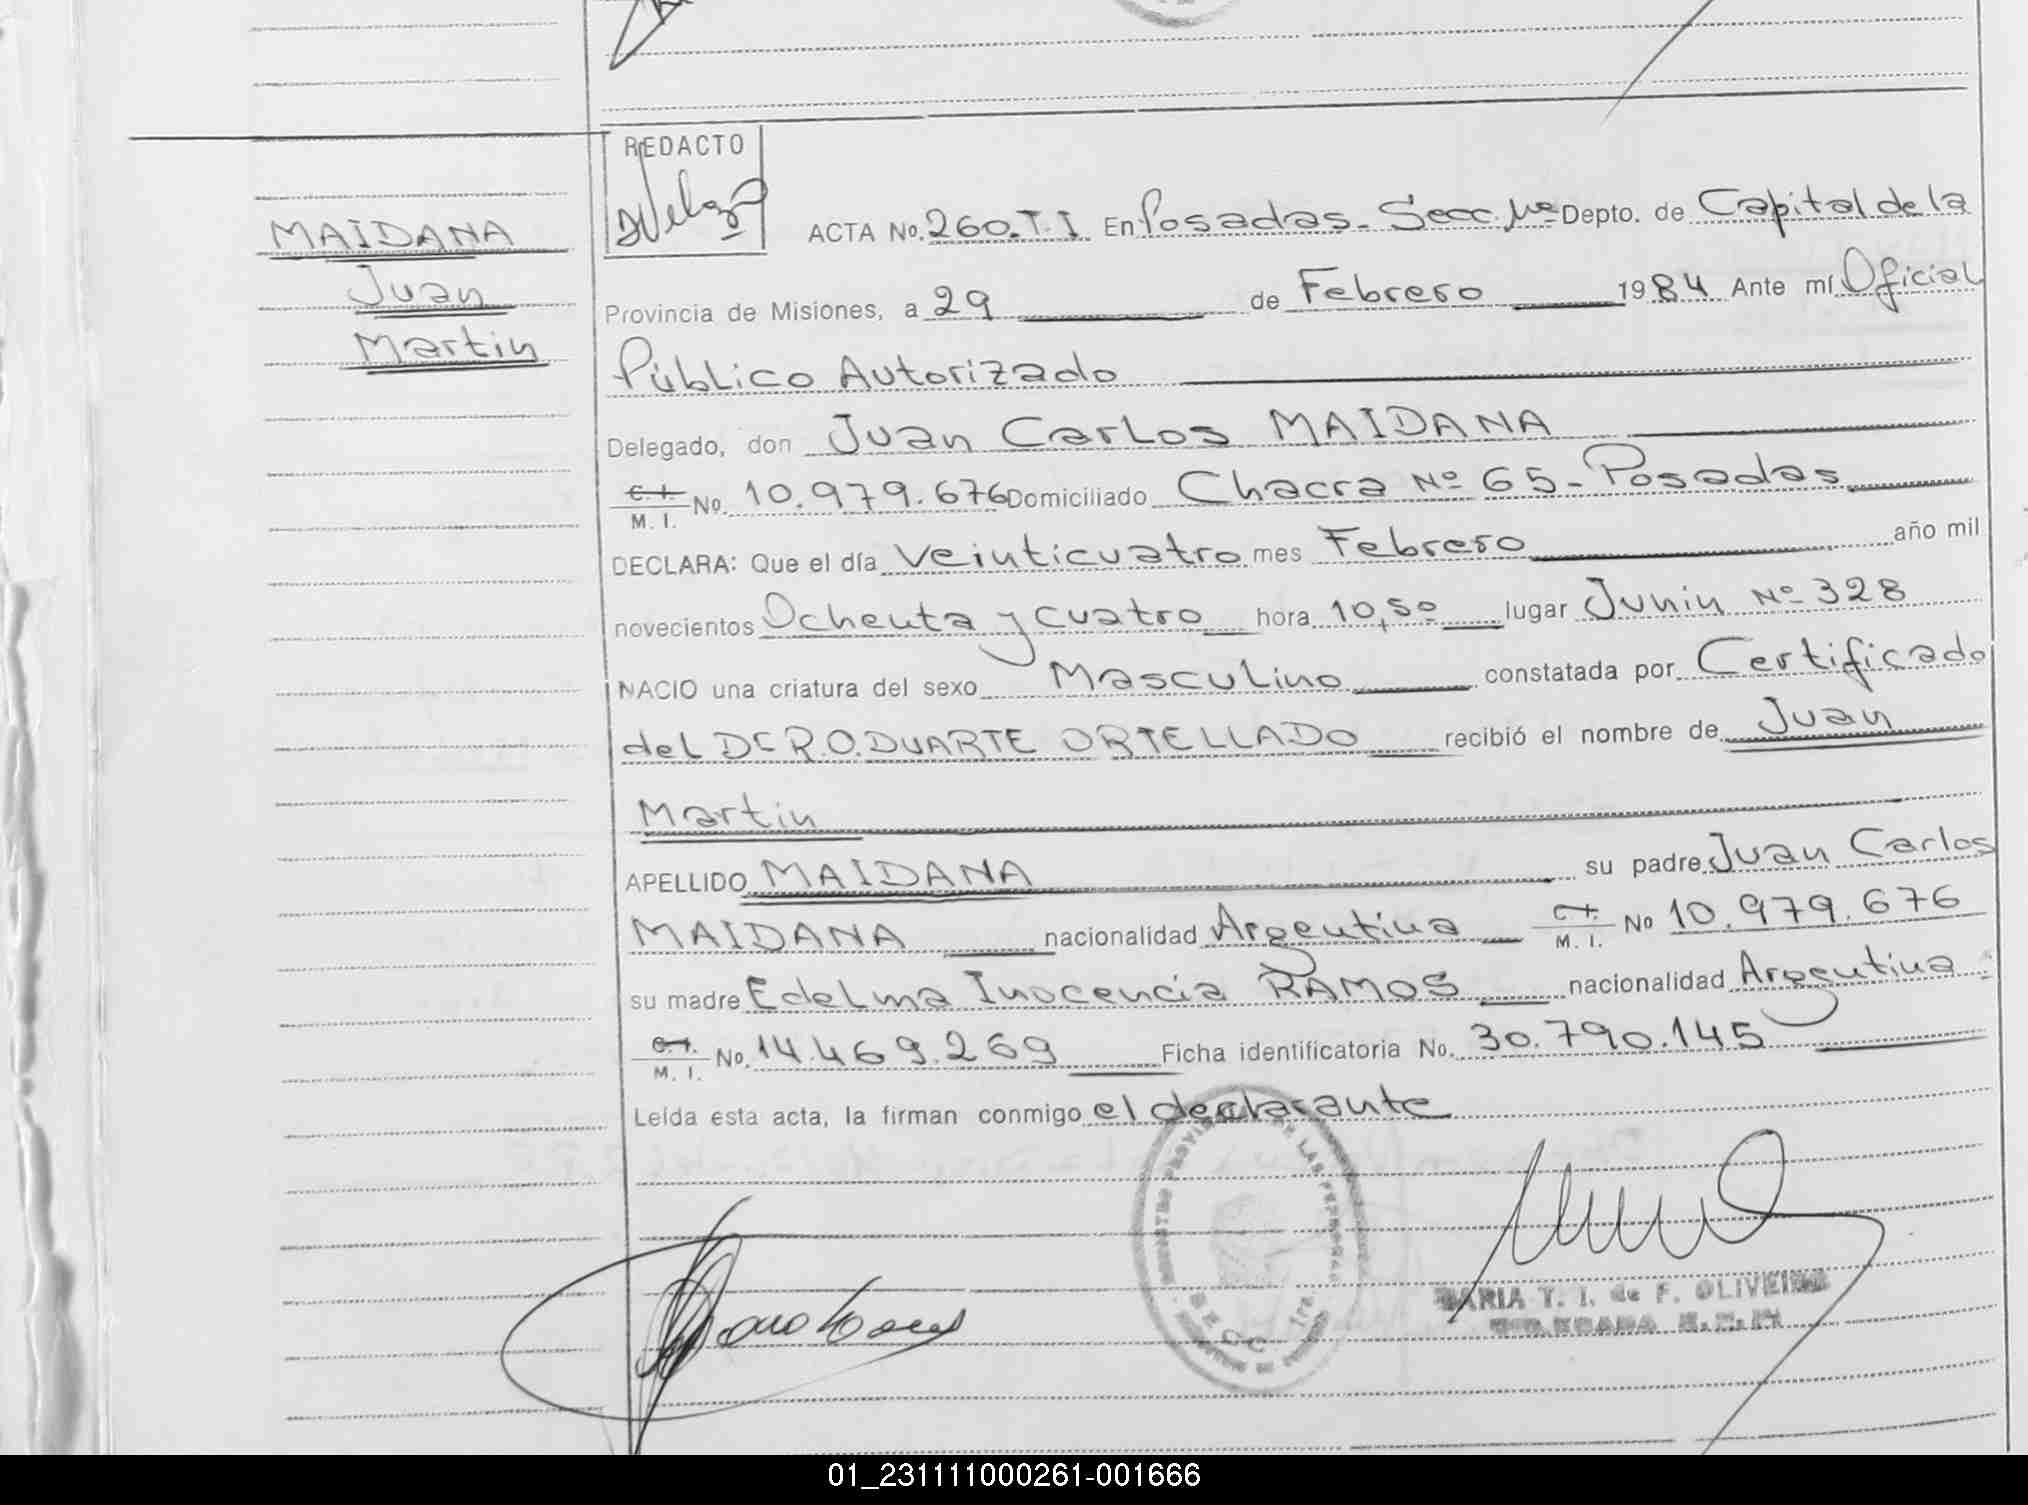 REDACTO
MAIDANA
Juan
Martin
ACTA No. 260.T.I En Posadas. Secc. 1ra Depto. de Capital de la
Provincia de Misiones, a 29 de Febrero 1984 Ante mí Oficial
Público Autorizado
Delegado, don Juan Carlos MAIDANA
C.I. / M. I. No. 10.979.676 Domiciliado Chacra Nº 65 - Posadas
DECLARA: Que el día Veinticuatro mes Febrero año mil
novecientos Ochenta y Cuatro hora 10,50 lugar Junin Nº 328
NACIO una criatura del sexo Masculino constatada por Certificado
del Dr R.O. DUARTE ORTELLADO recibió el nombre de Juan
Martin
APELLIDO MAIDANA su padre Juan Carlos
MAIDANA nacionalidad Argentina C.I. / M. I. No 10.979.676
su madre Edelma Inocencia RAMOS nacionalidad Argentina
C.I. / M. I. No. 14.469.269 Ficha identificatoria No. 30.790.145
Leída esta acta, la firman conmigo el declarante
MARIA T. I. de F. OLIVEIRA
01_231111000261-001666